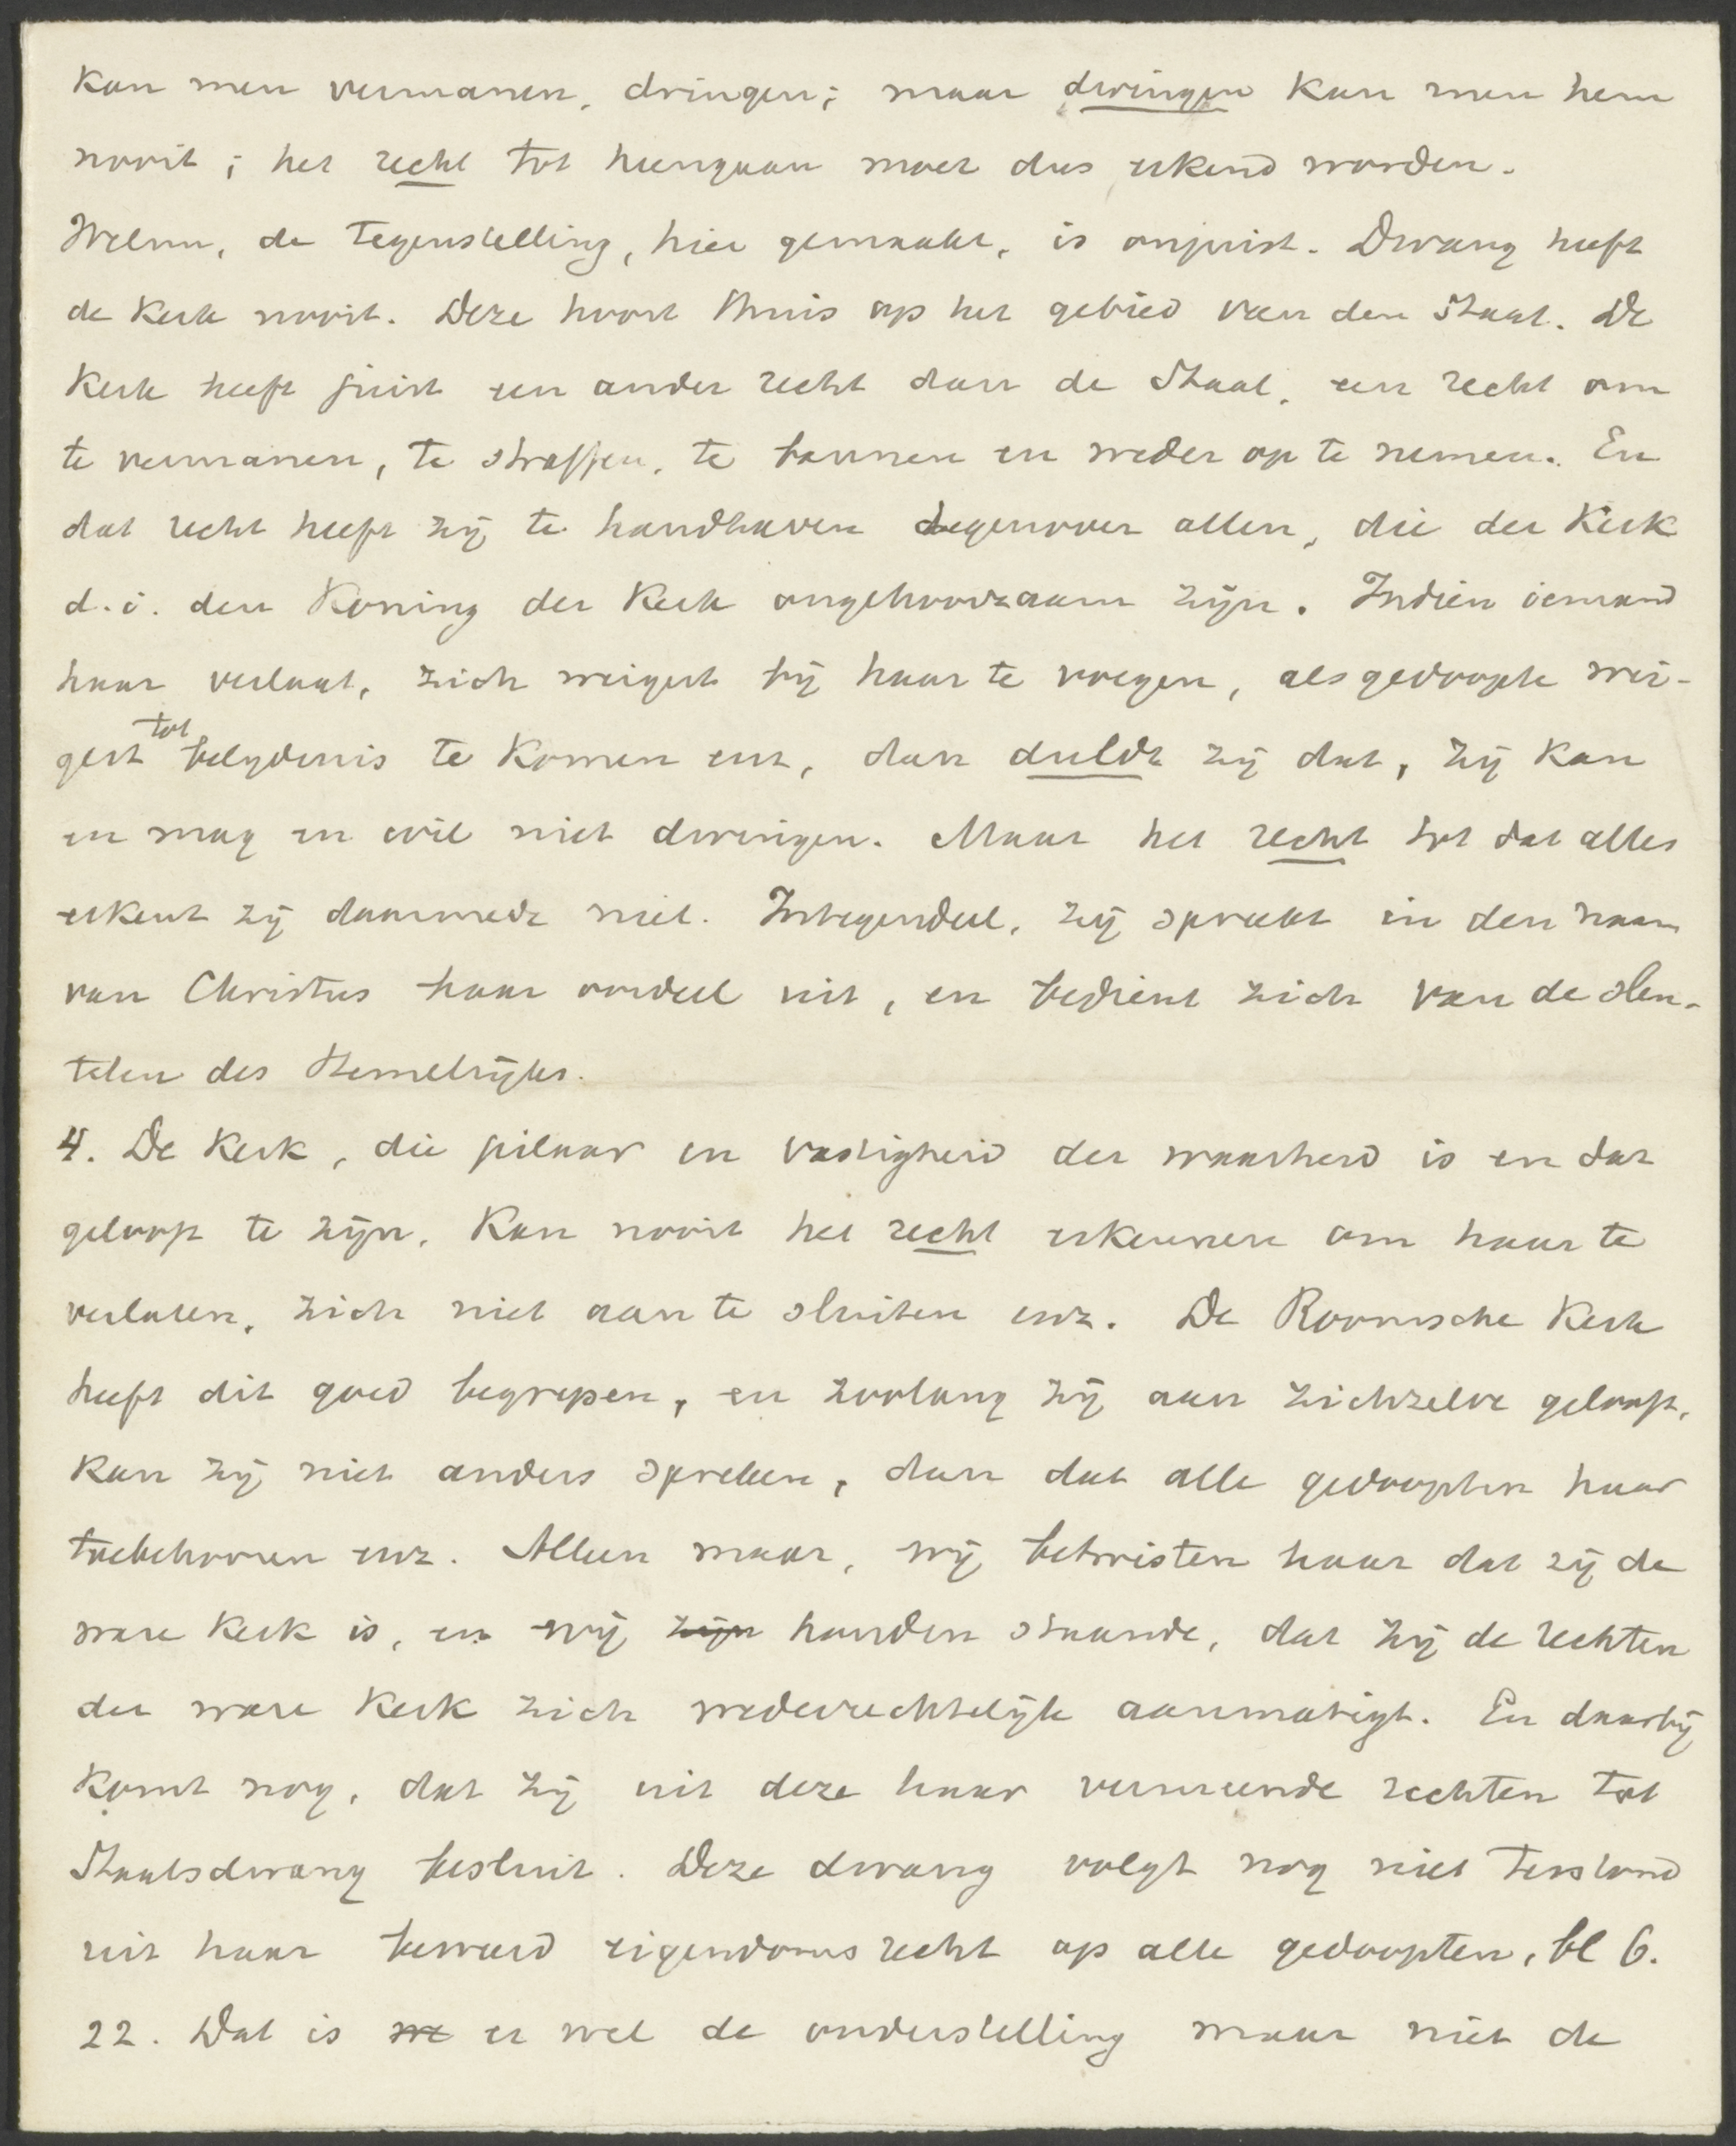 kan men vermanen, dringen; maar dwingen kan men hem
nooit; het recht tot heengaan moet dus erkend worden.
Welnu, de tegenstelling, hier gemaakt, is onjuist. Dwang heeft
de Kerk nooit. Deze hoort thuis op het gebied van den Staat. De
Kerk heeft juist een ander recht dan de Staat, een recht om
te vermanen, te straffen, te bannen en weder op te nemen. En
dat recht heeft zij te handhaven tegenover allen, die der Kerk
d.i. den Koning der Kerk ongehoorzaam zijn. Indien iemand
haar verlaat, zich weigert bij haar te voegen, als gedoopte wei-
gert tot belydenis te komen enz, dan duldt zij dat, zij kan
en mag en wil niet dwingen. Maar het recht tot dat alles
erkent zij daarmede niet. Integendeel, zij spreekt in den naam
van Christus haar oordeel uit, en bedient zich van de sleu-
telen des Hemelrijks.
4. De Kerk, die pilaar en vastigheid der waarheid is en dat
gelooft te zijn, kan nooit het recht erkennen om haar te
verlaten, zich niet aan te sluiten enz. De Roomsche Kerk
heeft dit goed begrepen, en zoolang zij aan zichzelve gelooft,
kan zij niet anders spreken, dan dat alle gedoopten haar
toebehooren enz. Alleen maar, wij betwisten haar dat zij de
ware Kerk is, en wij zijn houden staande, dat zij de rechten
der ware Kerk zich wederrechtelijk aanmatigt. En daarbij
komt nog, dat zij uit deze haar vermeende rechten tot
Staatsdwang besluit. Deze dwang volgt nog niet terstond
uit haar beweerd eigendomsrecht op alle gedoopten, bl 6.
22. Dat is we er wel de onderstelling maar niet de